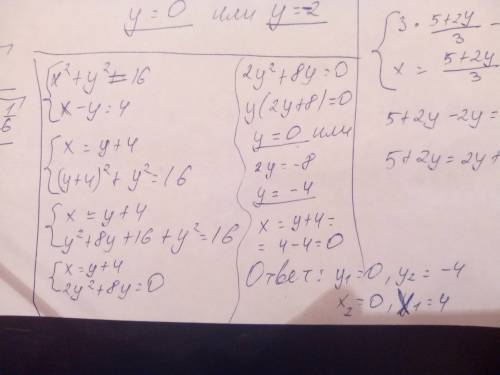 y = 0 или y = -2
{ x² + y² = 16
{ x - y = 4
{ x = y + 4
{ (y+4)² + y² = 16
{ x = y + 4
{ y² + 8y + 16 + y² = 16
{ x = y + 4
{ 2y² + 8y = 0
2y² + 8y = 0
y(2y+8) = 0
y = 0 или
2y = -8
y = -4
x = y + 4 =
= 4 - 4 = 0
Ответ: y₁ = 0, y₂ = -4
x₂ = 0, x₁ = 4
{ 3 · (5+2y)/3 -
{ x = (5+2y)/3
5 + 2y - 2y =
5 + 2y = 2y +